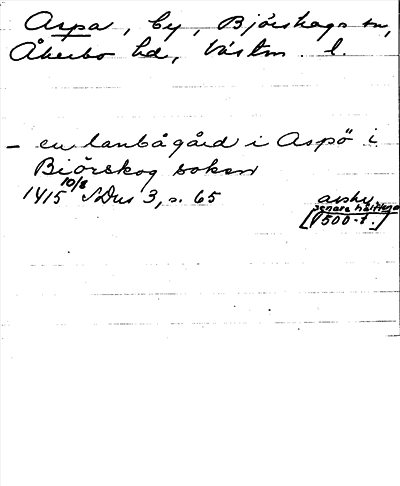 Aspa, by, Björskogs sn,
Åkerbo hd, Västm. l.
– en lanbågård i Aspö i
Biörskog soken
1415 10/8 SDns 3, s. 65
avskr.
senare hälften
[1500-t.]